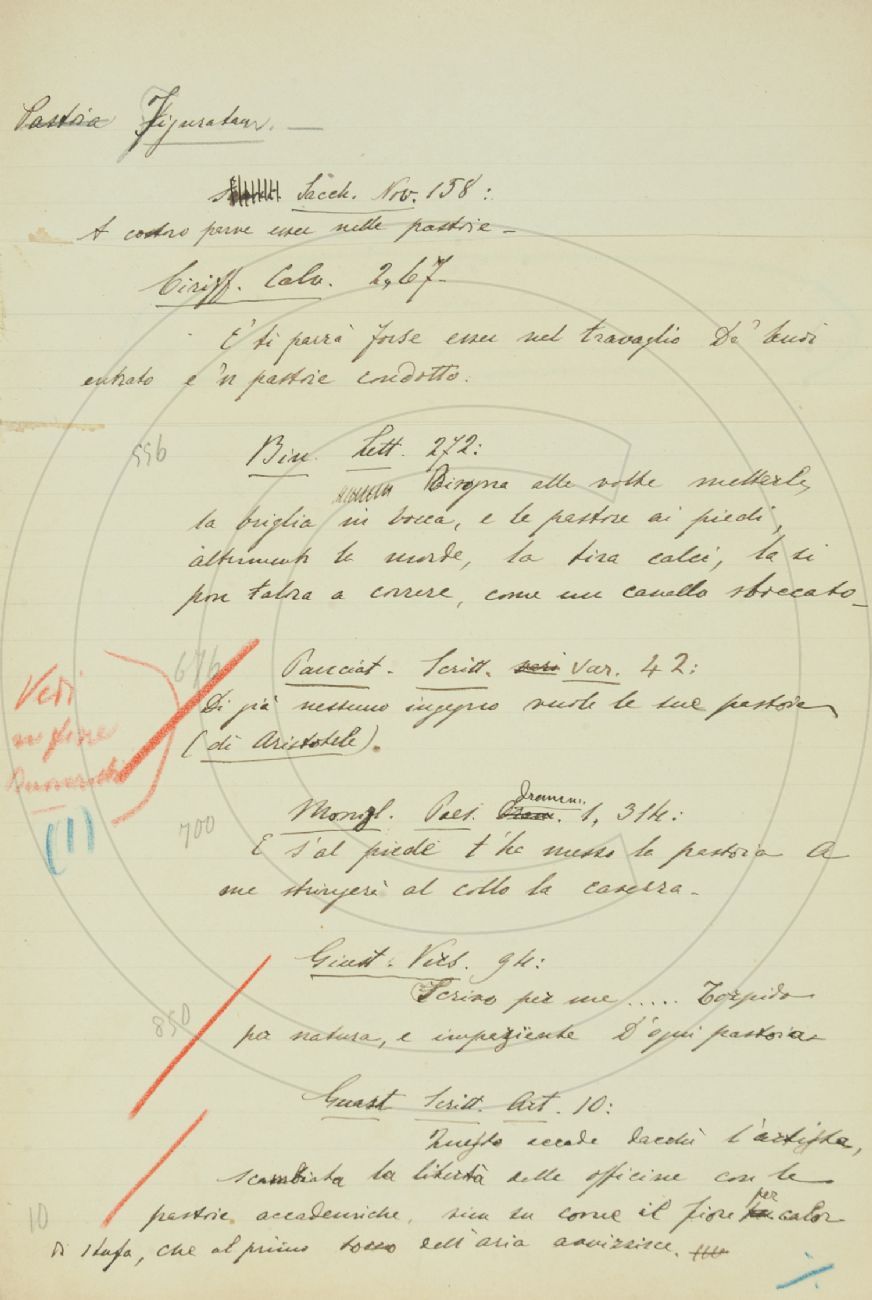 Pastoia Figuratam. —
Sacch. Nov. 158:
A costoro parve esser nelle pastoie –
Ciriff. Calv. 2, 67.
E' ti parrà forse esser nel travaglio De' buoi
entrato e 'n pastoie condotto.
556
Bin. Lett. 272:
Bisogna alle volte metterle
la briglia in bocca, e le pastoie ai piedi,
altrimenti la morde, la tira calci, la si
pon talora a correre, come un cavallo sboccato –
676
Panciat. Scritt. vari var. 42:
Vedi
in fine
Di già nessuno ingegno vuole le sue pastoie
(di Aristotele).
(1)
Monigl. Poes. dramm. 1, 314:
700
E s'al piede t'ha messo la pastoia A
me stringerà al collo la cavezza –
Giust. Vers. 94:
Scrivo per me ..... Torpido
850
per natura, e impaziente D'ogni pastoia –
Guast Scritt. Art. 10:
Questo accade dacchè l'artista,
scambiata la libertà delle officine con le
10
pastoie accademiche, vien su come il fiore per calor
di stufa, che al primo tocco dell'aria avvizzisce.